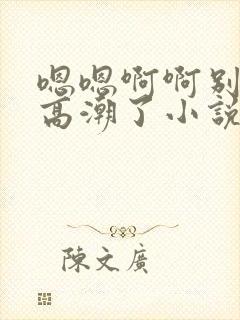 嗯嗯啊啊别
高潮了小説
陳文廣